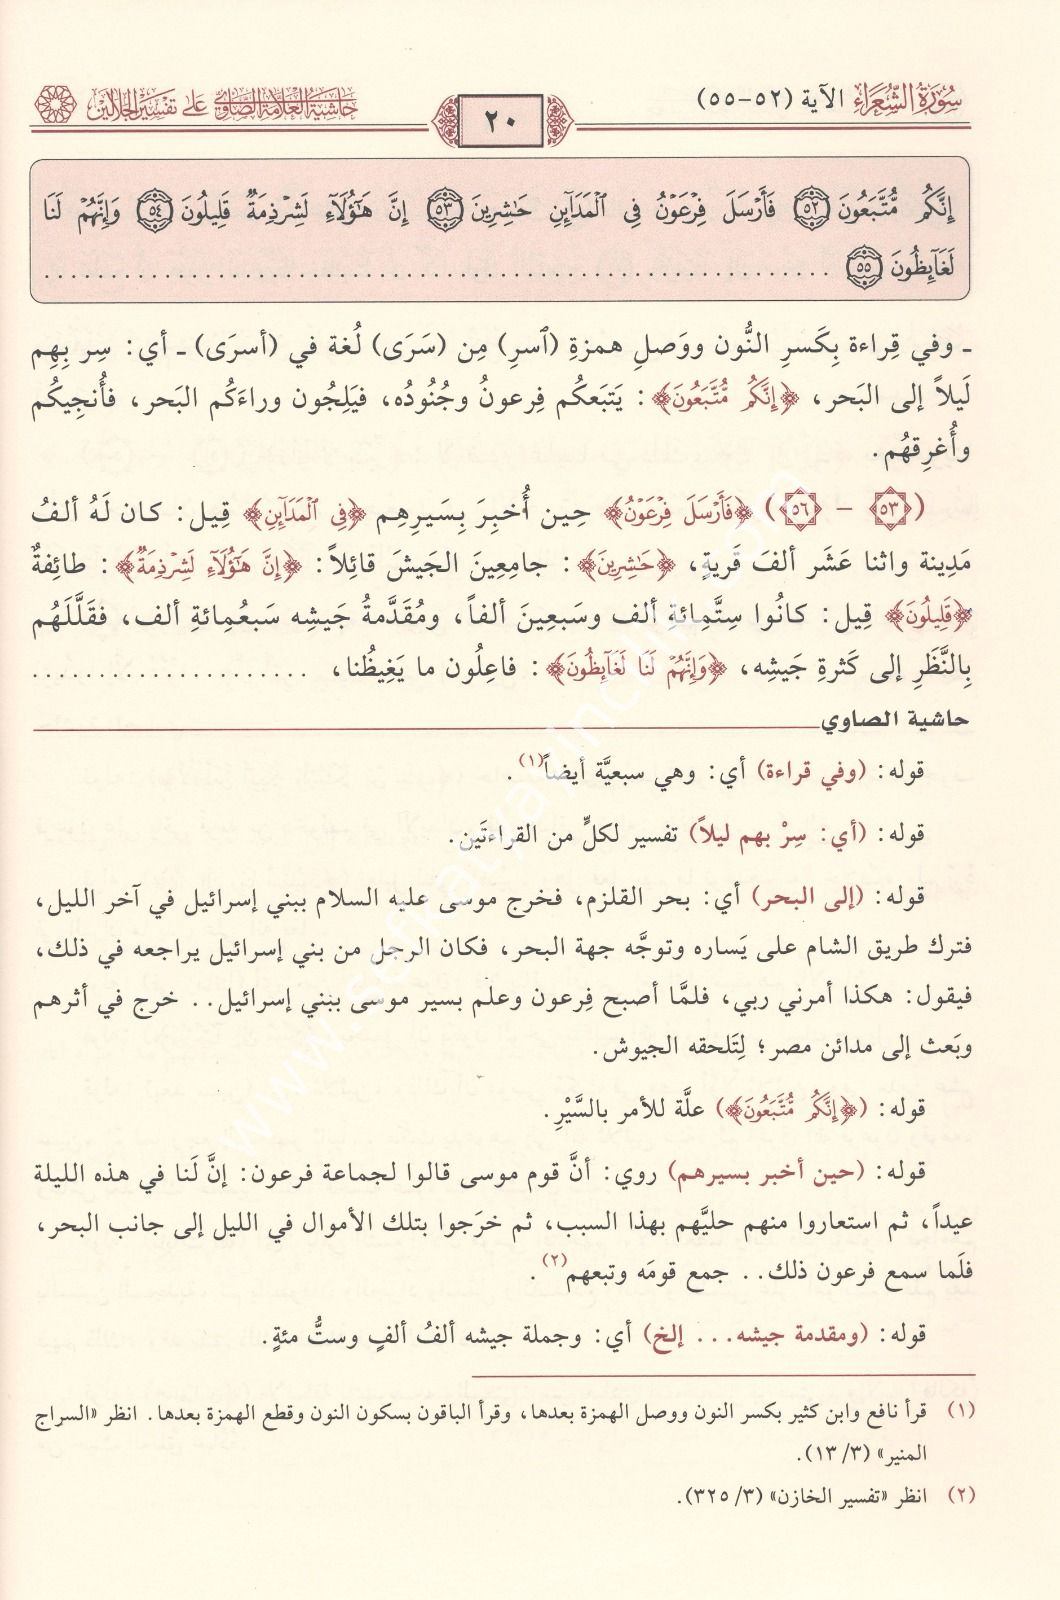 سُورَةُ الشُّعَرَاءِ الآية (٥٢-٥٥)
٢٠
حَاشِيَةُ العَلَّامَةِ الصَّاوِيِّ عَلَى تَفْسِيرِ الجَلَالَيْنِ
إِنَّكُم مُّتَّبَعُونَ ﴿٥٢﴾ فَأَرْسَلَ فِرْعَوْنُ فِي ٱلْمَدَآئِنِ حَٰشِرِينَ ﴿٥٣﴾ إِنَّ هَٰٓؤُلَآءِ لَشِرْذِمَةٌ قَلِيلُونَ ﴿٥٤﴾ وَإِنَّهُمْ لَنَا
لَغَآئِظُونَ ﴿٥٥﴾ ..........
ـ وفي قِراءة بِكَسرِ النُّون ووَصلِ همزةِ (ٱسرِ) مِن (سَرَى) لُغة في (أسرَى) ـ أي: سِر بِهِم
لَيلاً إلى البَحر، ﴿إِنَّكُم مُّتَّبَعُونَ﴾: يَتبَعكُم فِرعونُ وجُنُودُه، فيَلِجُون وراءَكُم البَحر، فأُنجِيكُم
وأُغرِقهُم.
(٥٣ – ٥٦) ﴿فَأَرْسَلَ فِرْعَوْنُ﴾ حِين أُخبِرَ بِسَيرِهِم ﴿فِي ٱلْمَدَآئِنِ﴾ قِيل: كان لَهُ ألفُ
مَدِينة واثنا عَشَر ألفَ قَريةٍ، ﴿حَٰشِرِينَ﴾: جامِعِينَ الجَيشَ قائِلاً: ﴿إِنَّ هَٰٓؤُلَآءِ لَشِرْذِمَةٌ﴾: طائِفةٌ
﴿قَلِيلُونَ﴾ قِيل: كانُوا سِتَّمِائةِ ألف وسَبعِينَ ألفاً، ومُقَدَّمةُ جَيشِه سَبعُمِائةِ ألف، فقَلَّلَهُم
بِالنَّظَرِ إلى كَثرةِ جَيشِه، ﴿وَإِنَّهُمْ لَنَا لَغَآئِظُونَ﴾: فاعِلُون ما يَغِيظُنا، ..........
حاشية الصاوي
قوله: (وفي قراءة) أي: وهي سبعيَّة أيضاً(١).
قوله: (أي: سِرْ بهم ليلاً) تفسير لكلٍّ من القراءتَين.
قوله: (إلى البحر) أي: بحر القلزم، فخرج موسى عليه السلام ببني إسرائيل في آخر الليل،
فترك طريق الشام على يَساره وتوجَّه جهة البحر، فكان الرجل من بني إسرائيل يراجعه في ذلك،
فيقول: هكذا أمرني ربي، فلمَّا أصبح فِرعون وعلم بسير موسى ببني إسرائيل.. خرج في أثرهم
وبَعث إلى مدائن مصر؛ لِتَلحقه الجيوش.
قوله: (﴿إِنَّكُم مُّتَّبَعُونَ﴾) علَّة للأمر بالسَّيْرِ.
قوله: (حين أخبر بسيرهم) روي: أنَّ قوم موسى قالوا لجماعة فرعون: إنَّ لَنا في هذه الليلة
عيداً، ثم استعاروا منهم حليَّهم بهذا السبب، ثم خرَجوا بتلك الأموال في الليل إلى جانب البحر،
فلَما سمع فرعون ذلك.. جمع قومَه وتبعهم(٢).
قوله: (ومقدمة جيشه... إلخ) أي: وجملة جيشه ألفُ ألفٍ وستُّ مئةٍ.
(١) قرأ نافع وابن كثير بكسر النون ووصل الهمزة بعدها، وقرأ الباقون بسكون النون وقطع الهمزة بعدها. انظر «السراج
المنير» (٣/ ١٣).
(٢) انظر «تفسير الخازن» (٣/ ٣٢٥).